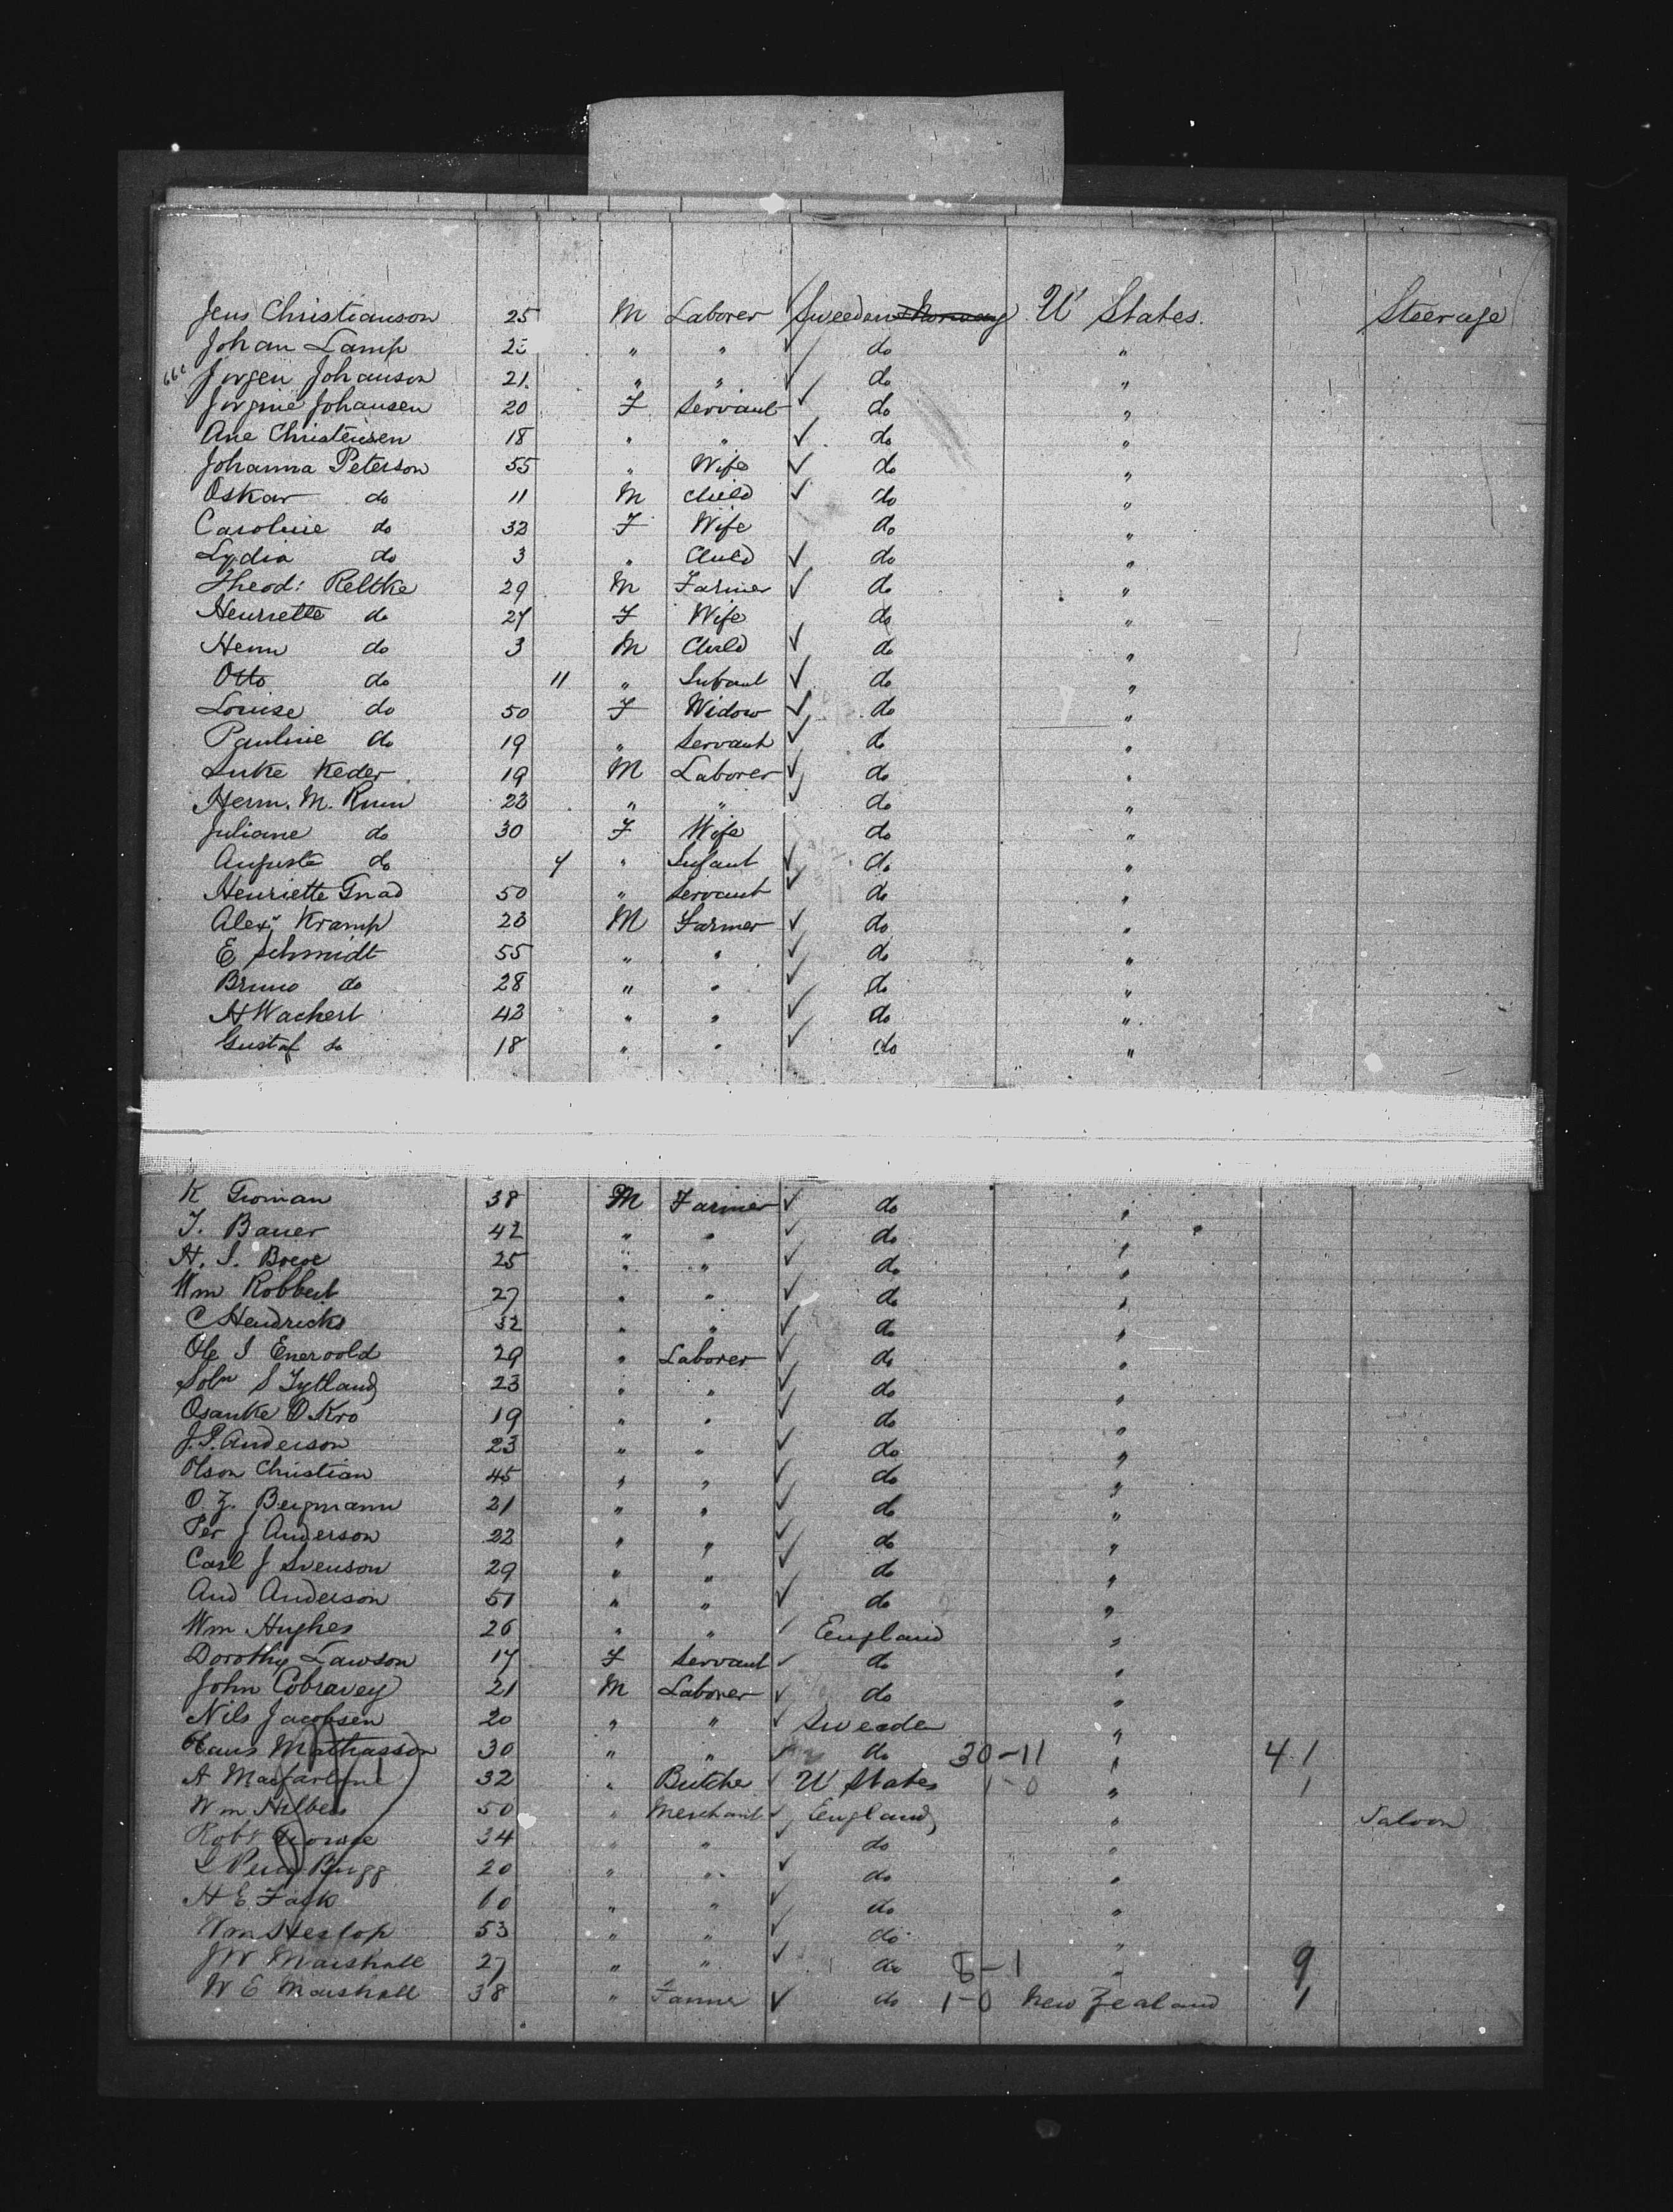 Jens Christianson 25 M Laborer ✓ Sweeden & Norway U States. Steerage
Johan Lamp 2 " " ✓ do "
660 Jorgen Johanson 21. " " ✓ do "
Jorgine Johansen 20 F Servant ✓ do "
Ane Christensen 18 " " ✓ do "
Johanna Peterson 55 " Wife ✓ do "
Oskar do 11 M Child ✓ do "
Caroline do 32 F Wife do "
Lydia do 3 " Child ✓ do "
Theod: Reltke 29 M Farmer ✓ do "
Henriette do 27 F Wife do "
Henn do 3 M Child ✓ do "
Otto do 11 " Infant ✓ do "
Louise do 50 F Widow ✓ do "
Pauline do 19 " Servant ✓ do "
Luke Keder 19 M Laborer ✓ do "
Herm. M. Rum 23 " " ✓ do "
Juliane do 30 F Wife do "
Auguste do 4 " Infant ✓ do "
Henriette Gnad 50 " Servant ✓ do "
Alexr Kramp 23 M Farmer ✓ do "
E Schmidt 55 " " ✓ do "
Bruno do 28 " " ✓ do "
H Wachert 43 " " ✓ do "
Gustaf do 18 " " ✓ do "
K Groman 38 M Farmer ✓ do "
T. Bauer 42 " " ✓ do "
H. S. 25 " " ✓ do "
Wm Robbert 27 " " ✓ do "
C Hendricks 32 " " ✓ do "
Ole I Enervold 29 " Laborer ✓ do "
Soln S Tytland 23 " " ✓ do "
Osanke O. Kro 19 " " ✓ do "
J. P. Anderson 23 " " ✓ do "
Olson Christian 45 " " ✓ do "
O. Z. Bergmann 21 " " ✓ do "
Per J Anderson 22 " " ✓ do "
Carl J Svenson 29 " " ✓ do "
And Anderson 51 " " ✓ do "
Wm Hughes 26 " " ✓ England "
Dorothy Lawson 17 F Servant ✓ do "
John Cobravey 21 M Laborer ✓ do "
Nils Jacobsen 20 " " ✓ Sweede "
Claus Mathiasson 30 " " ✓ do 30-11 " 41
A Macfarlane 32 " Butcher ✓ U States 1-0 " 1
Wm Hilbers 50 " Merchant ✓ England " Saloon
Robt George 34 " " ✓ do "
L Percy Bugg 20 " " ✓ do "
H E Fack 60 " " ✓ do "
Wm Heslop 53 " " ✓ do "
JW Marshall 27 " " ✓ do 8-1 " 9
W E Marshall 38 " Farmer ✓ do 1-0 New Zealand 1